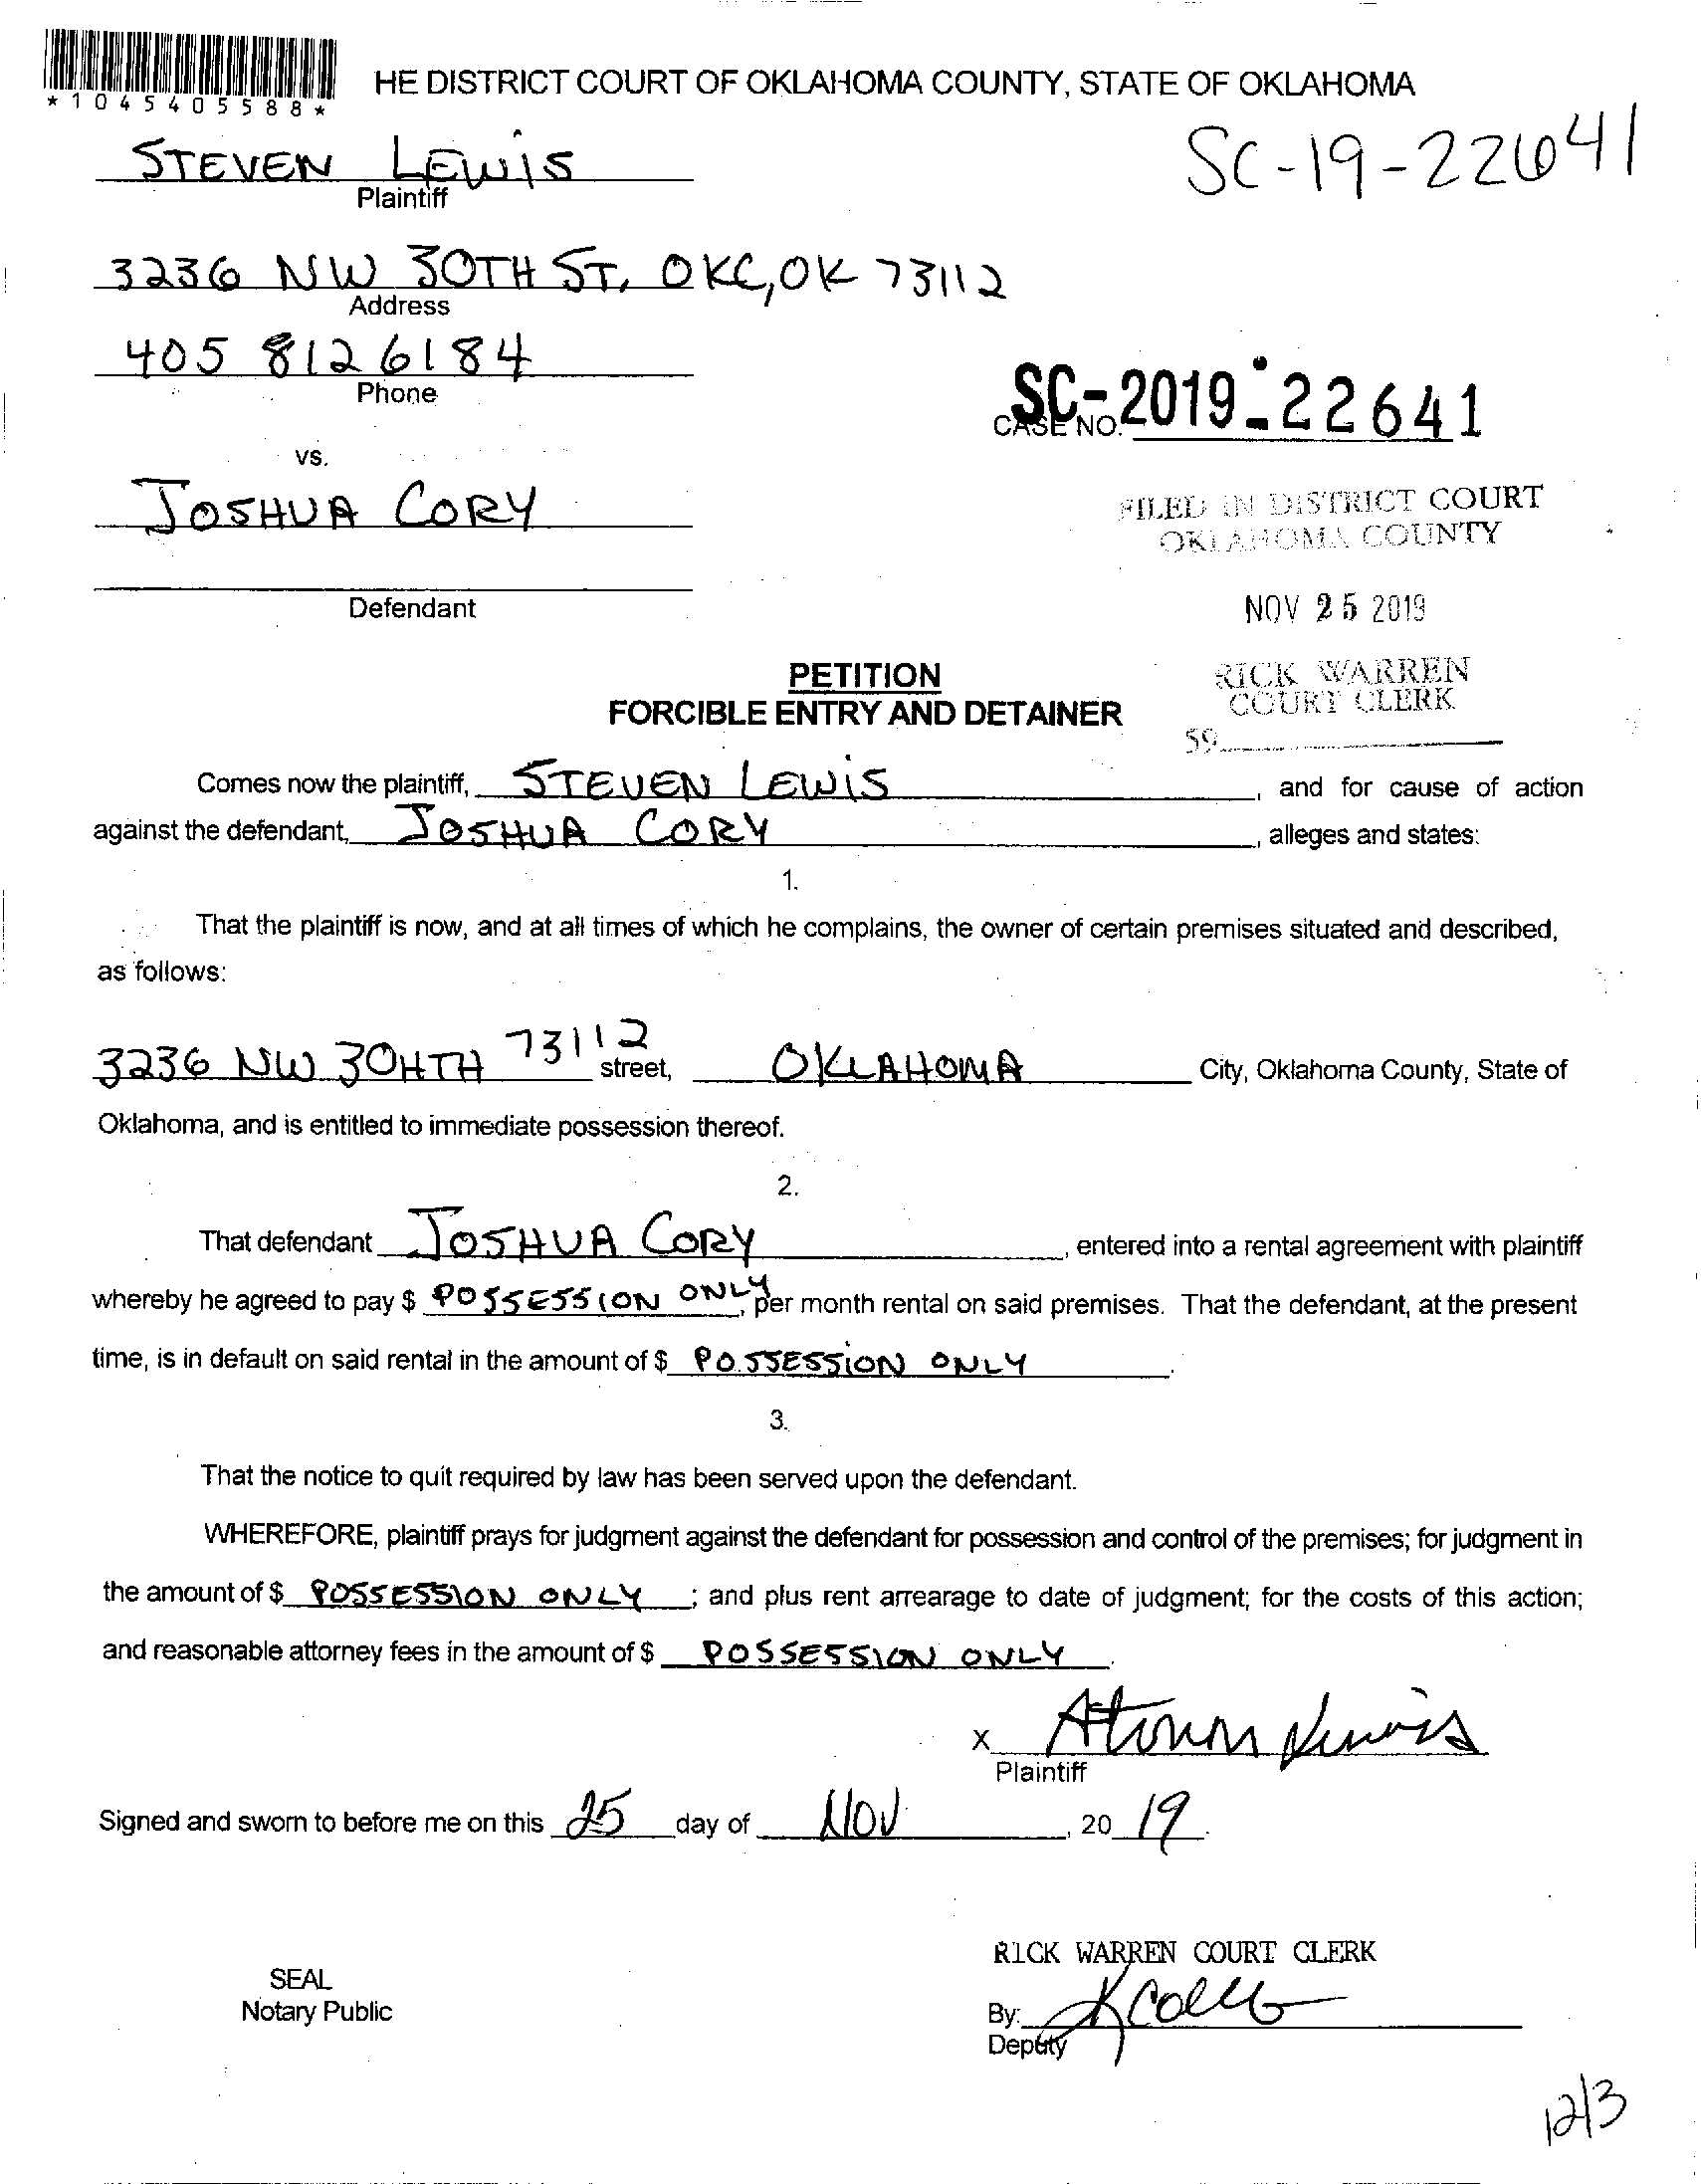 HE DISTRICT COURT OF OKLAHOMA COUNTY, STATE OF OKLAHOMA
*1045405588*
STEVEN LEWIS
Plaintiff
SC-19-22641
3236 NW 30TH ST, OKC, OK 73112
Address
405 812 6184
Phone
SC-2019-22641
CASE NO.
vs.
JOSHUA CORY
Defendant
FILED IN DISTRICT COURT
OKLAHOMA COUNTY
NOV 25 2019
RICK WARREN
COURT CLERK
59
PETITION
FORCIBLE ENTRY AND DETAINER
Comes now the plaintiff, STEVEN LEWIS, and for cause of action
against the defendant, JOSHUA CORY, alleges and states:
1.
That the plaintiff is now, and at all times of which he complains, the owner of certain premises situated and described,
as follows:
3236 NW 30HTH 73112 street, OKLAHOMA City, Oklahoma County, State of
Oklahoma, and is entitled to immediate possession thereof.
2.
That defendant JOSHUA CORY, entered into a rental agreement with plaintiff
whereby he agreed to pay $ POSSESSION ONLY, per month rental on said premises. That the defendant, at the present
time, is in default on said rental in the amount of $ POSSESSION ONLY.
3.
That the notice to quit required by law has been served upon the defendant.
WHEREFORE, plaintiff prays for judgment against the defendant for possession and control of the premises; for judgment in
the amount of $ POSSESSION ONLY; and plus rent arrearage to date of judgment; for the costs of this action;
and reasonable attorney fees in the amount of $ POSSESSION ONLY.
X
Plaintiff
Signed and sworn to before me on this 25 day of NOV, 20 19.
RICK WARREN COURT CLERK
SEAL
Notary Public
By:
Deputy
12/3